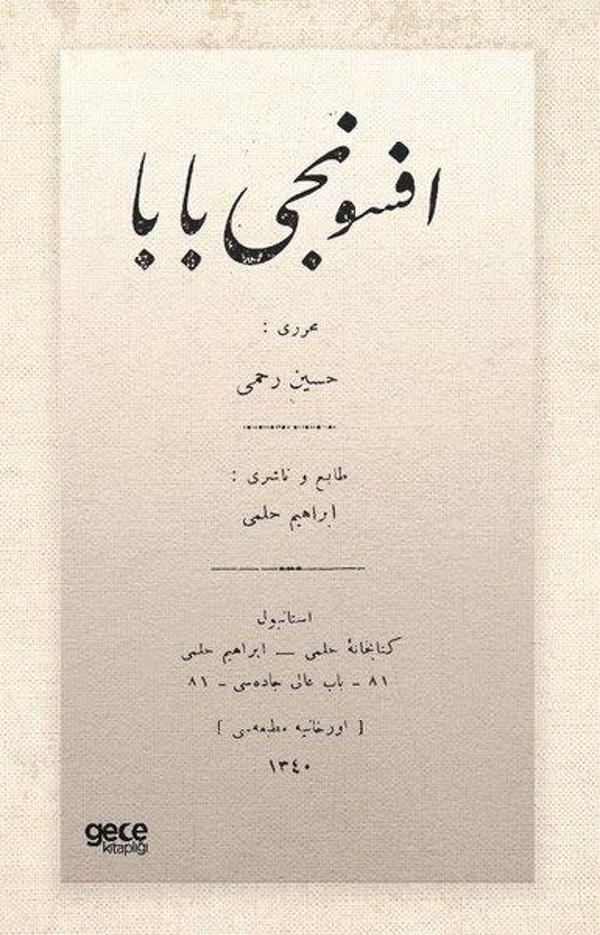 افسونجی بابا
محرری :
حسین رحمی
طابع و ناشری :
ابراهیم حلمی
استانبول
کتابخانهٔ حلمی — ابراهیم حلمی
٨١ - باب عالی جاده‌سی - ٨١
[ اورخانیه مطبعه‌سی ]
١٣٤٠
gece
kitaplığı